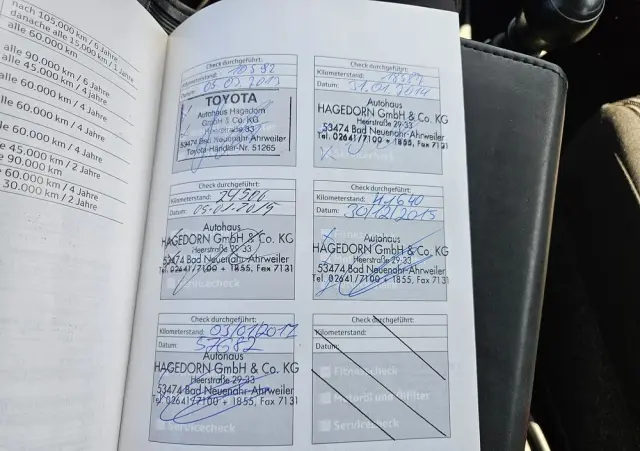 nach 105.000 km / 6 Jahre
danach alle 15.000 km / 1 Jahr
alle 60.000 km
alle 90.000 km / 6 Jahre
alle 45.000 km / 4 Jahre
60.000 km / 4 Jahre
60.000 km / 4 Jahre
60.000 km / 4 Jahre
45.000 km / 2 Jahre
90.000 km
60.000 km / 4 Jahre
30.000 km / 2 Jahre
Check durchgeführt:
Kilometerstand: 10592
Datum:
TOYOTA
Autohaus Hagedorn
GmbH & Co. KG
Heerstraße 33
53474 Bad Neuenahr-Ahrweiler
Toyota-Händler-Nr. 51265
Check durchgeführt:
Kilometerstand: 18587
Datum: 31.01.2014
Autohaus
HAGEDORN GmbH & Co. KG
Heerstraße 29-33
53474 Bad Neuenahr-Ahrweiler
Tel. 02641/7100 + 1855, Fax 7131
Check durchgeführt:
Kilometerstand: 24506
Datum: 05.01.2015
Autohaus
HAGEDORN GmbH & Co. KG
Heerstraße 29-33
53474 Bad Neuenahr-Ahrweiler
Tel. 02641/7100 + 1855, Fax 7131
Servicecheck
Check durchgeführt:
Kilometerstand: 41640
Datum: 30/12/2015
Autohaus
HAGEDORN GmbH & Co. KG
Heerstraße 29-33
53474 Bad Neuenahr-Ahrweiler
Tel. 02641/7100 + 1855, Fax 7131
Servicecheck
Check durchgeführt:
Kilometerstand: 03/01/2017
Datum: 57682
Autohaus
HAGEDORN GmbH & Co. KG
Heerstraße 29-33
53474 Bad Neuenahr-Ahrweiler
Tel. 02641/7100 + 1855, Fax 7131
Servicecheck
Check durchgeführt:
Kilometerstand:
Datum:
Fitnesscheck
Motoröl und Ölfilter
Servicecheck